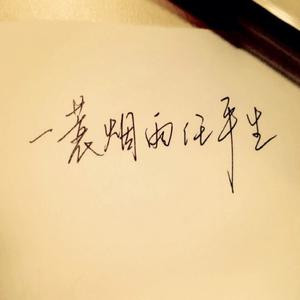 一蓑烟雨任平生